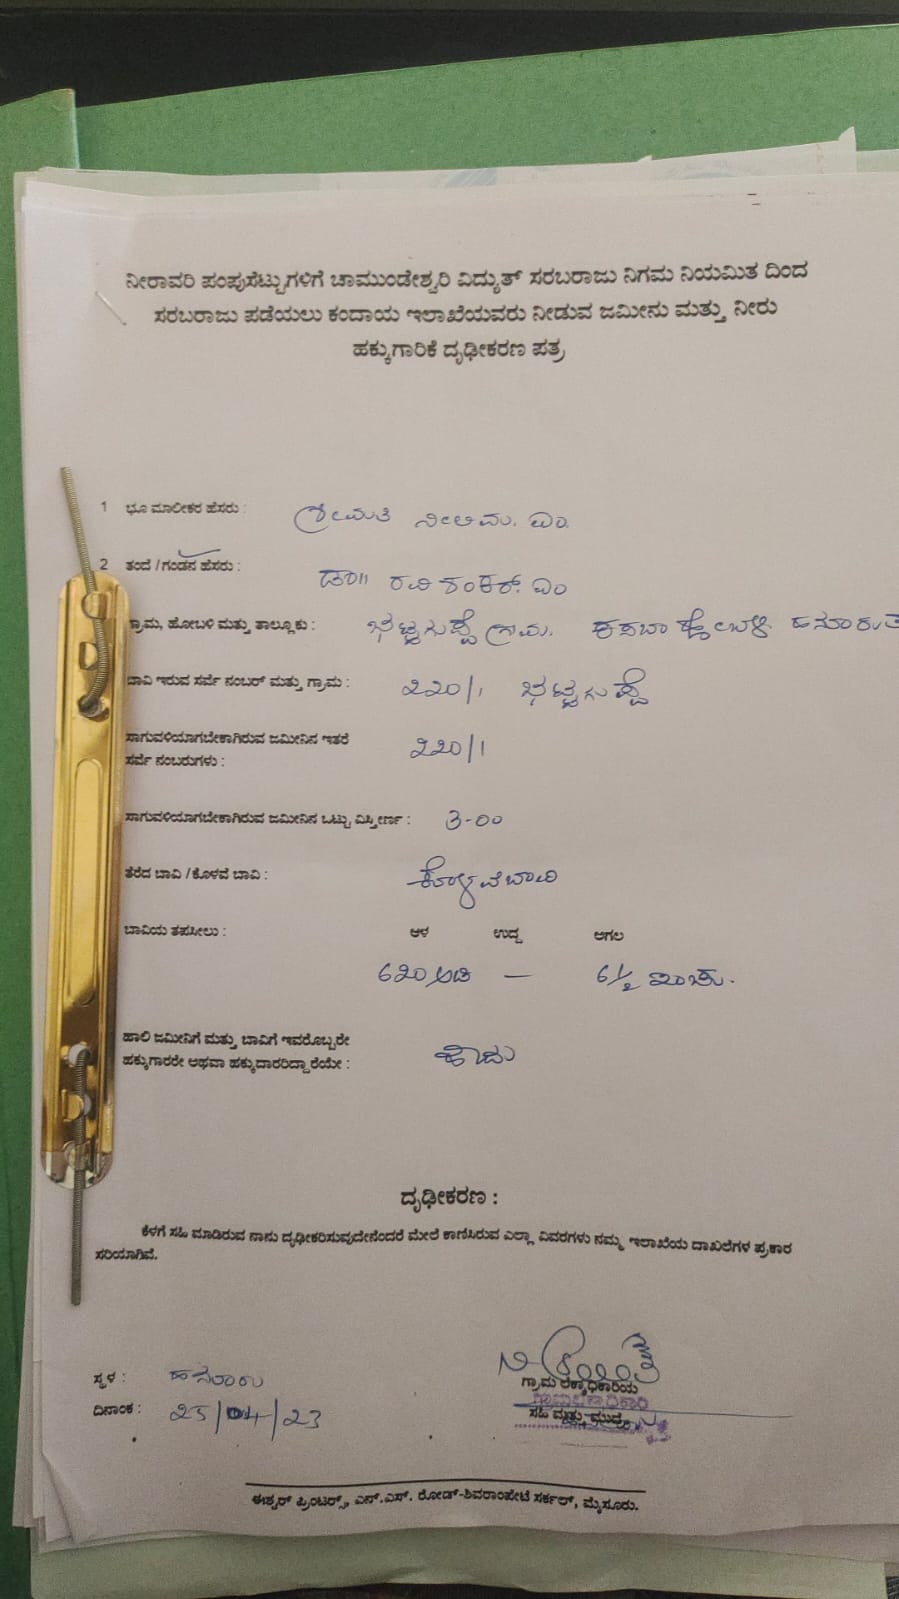 ನೀರಾವರಿ ಪಂಪುಸೆಟ್ಟುಗಳಿಗೆ ಚಾಮುಂಡೇಶ್ವರಿ ವಿದ್ಯುತ್ ಸರಬರಾಜು ನಿಗಮ ನಿಯಮಿತ ದಿಂದ
ಸರಬರಾಜು ಪಡೆಯಲು ಕಂದಾಯ ಇಲಾಖೆಯವರು ನೀಡುವ ಜಮೀನು ಮತ್ತು ನೀರು
ಹಕ್ಕುಗಾರಿಕೆ ದೃಢೀಕರಣ ಪತ್ರ
1 ಭೂ ಮಾಲೀಕರ ಹೆಸರು : ಶ್ರೀಮತಿ ನೀಲಿಮ. ಎಂ.
2 ತಂದೆ / ಗಂಡನ ಹೆಸರು : ಡಾ|| ರವಿ ಶಂಕರ್. ಎಂ
ಗ್ರಾಮ, ಹೋಬಳಿ ಮತ್ತು ತಾಲ್ಲೂಕು : ಭಟ್ಟಗುಪ್ಪೆ ಗ್ರಾಮ. ಕಸಬಾ ಹೋಬಳಿ
ಬಾವಿ ಇರುವ ಸರ್ವೆ ನಂಬರ್ ಮತ್ತು ಗ್ರಾಮ : 220/1 ಭಟ್ಟಗುಪ್ಪೆ
ಸಾಗುವಳಿಯಾಗಬೇಕಾಗಿರುವ ಜಮೀನಿನ ಇತರೆ
ಸರ್ವೆ ನಂಬರುಗಳು : 220/1
ಸಾಗುವಳಿಯಾಗಬೇಕಾಗಿರುವ ಜಮೀನಿನ ಒಟ್ಟು ವಿಸ್ತೀರ್ಣ : 3-00
ತೆರೆದ ಬಾವಿ / ಕೊಳವೆ ಬಾವಿ : ಕೊಳವೆಬಾವಿ
ಬಾವಿಯ ತಪಸೀಲು : ಆಳ ಉದ್ದ ಅಗಲ
620 ಅಡಿ — 6½ ಇಂಚು.
ಹಾಲಿ ಜಮೀನಿಗೆ ಮತ್ತು ಬಾವಿಗೆ ಇವರೊಬ್ಬರೇ
ಹಕ್ಕುಗಾರರೇ ಅಥವಾ ಹಕ್ಕುದಾರರಿದ್ದಾರೆಯೇ : ಹೌದು
ದೃಢೀಕರಣ :
ಕೆಳಗೆ ಸಹಿ ಮಾಡಿರುವ ನಾನು ದೃಢೀಕರಿಸುವುದೇನೆಂದರೆ ಮೇಲೆ ಕಾಣಿಸಿರುವ ಎಲ್ಲಾ ವಿವರಗಳು ನಮ್ಮ ಇಲಾಖೆಯ ದಾಖಲೆಗಳ ಪ್ರಕಾರ
ಸರಿಯಾಗಿವೆ.
ಸ್ಥಳ : ಹನೂರು
ಗ್ರಾಮ ಲೆಕ್ಕಾಧಿಕಾರಿಯ
ದಿನಾಂಕ : 25/04/23
ಸಹಿ ಮತ್ತು ಮುದ್ರೆ
ಈಶ್ವರ್ ಪ್ರಿಂಟರ್ಸ್, ಎನ್.ಎಸ್. ರೋಡ್-ಶಿವರಾಂಪೇಟೆ ಸರ್ಕಲ್, ಮೈಸೂರು.